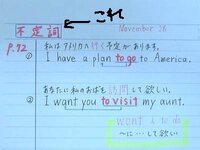 不定詞 これ
November 26
P.72
私はアメリカへ行く予定があります。
① I have a plan to go to America.
あなたに私のおばを訪問して欲しい。
② I want you to visit my aunt.
want 人 to do
〜に…して欲しい